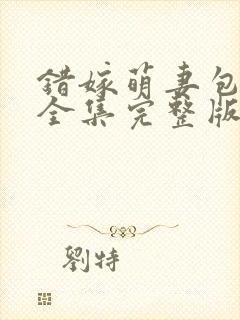 错嫁萌妻包
全集完整版
劉特